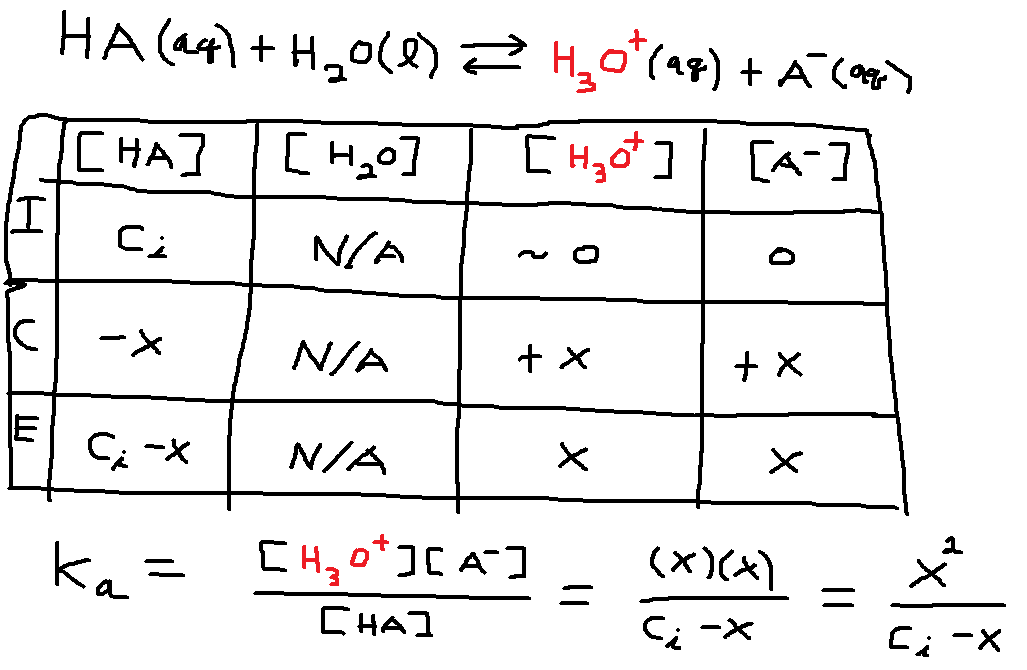 HA(aq) + H₂O(l) ⇌ H₃O⁺(aq) + A⁻(aq)
[HA] [H₂O] [H₃O⁺] [A⁻]
I Cᵢ N/A ~0 0
C -x N/A +x +x
E Cᵢ-x N/A x x
Ka = [H₃O⁺][A⁻] / [HA] = (x)(x) / Cᵢ-x = x² / Cᵢ-x